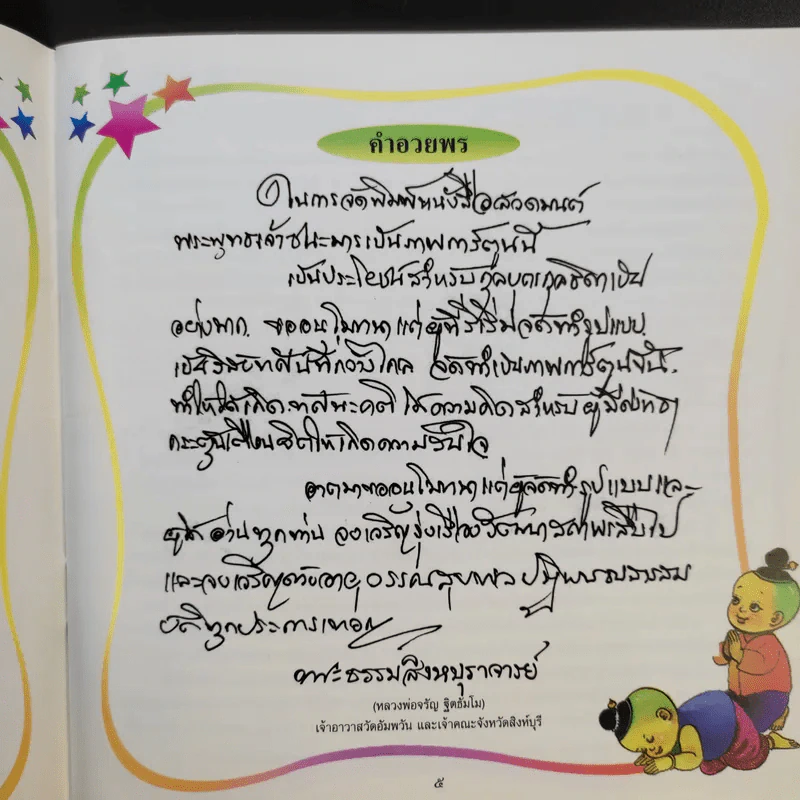 คำอวยพร
ในการจัดพิมพ์หนังสือสวดมนต์
พระพุทธเจ้าชนะมารเป็นภาพการ์ตูนนี้
เป็นประโยชน์สำหรับกุลบุตรกุลธิดาเป็น
อย่างมาก ขออนุโมทนาแด่ผู้ที่ริเริ่มจัดทำรูปแบบ
เป็นวิสัยทัศน์ที่กว้างไกล จัดทำเป็นภาพการ์ตูนขึ้น
ทำให้ได้เกิดทัศนะคติ ได้ความคิดสำหรับผู้มีปัญญา
กระตุ้นเตือนจิตให้เกิดความซึ้งใจ
อาตมาขออนุโมทนาแด่ผู้จัดทำรูปแบบและ
ผู้อ่านทุกท่าน จงเจริญรุ่งเรืองวัฒนาสถาพรสืบไป
และจงเจริญด้วยอายุ วรรณะ สุขะ พละ ปฏิภาณธนสารสม
บัติทุกประการเทอญ
พระธรรมสิงหบุราจารย์
(หลวงพ่อจรัญ ฐิตธัมโม)
เจ้าอาวาสวัดอัมพวัน และเจ้าคณะจังหวัดสิงห์บุรี
๕